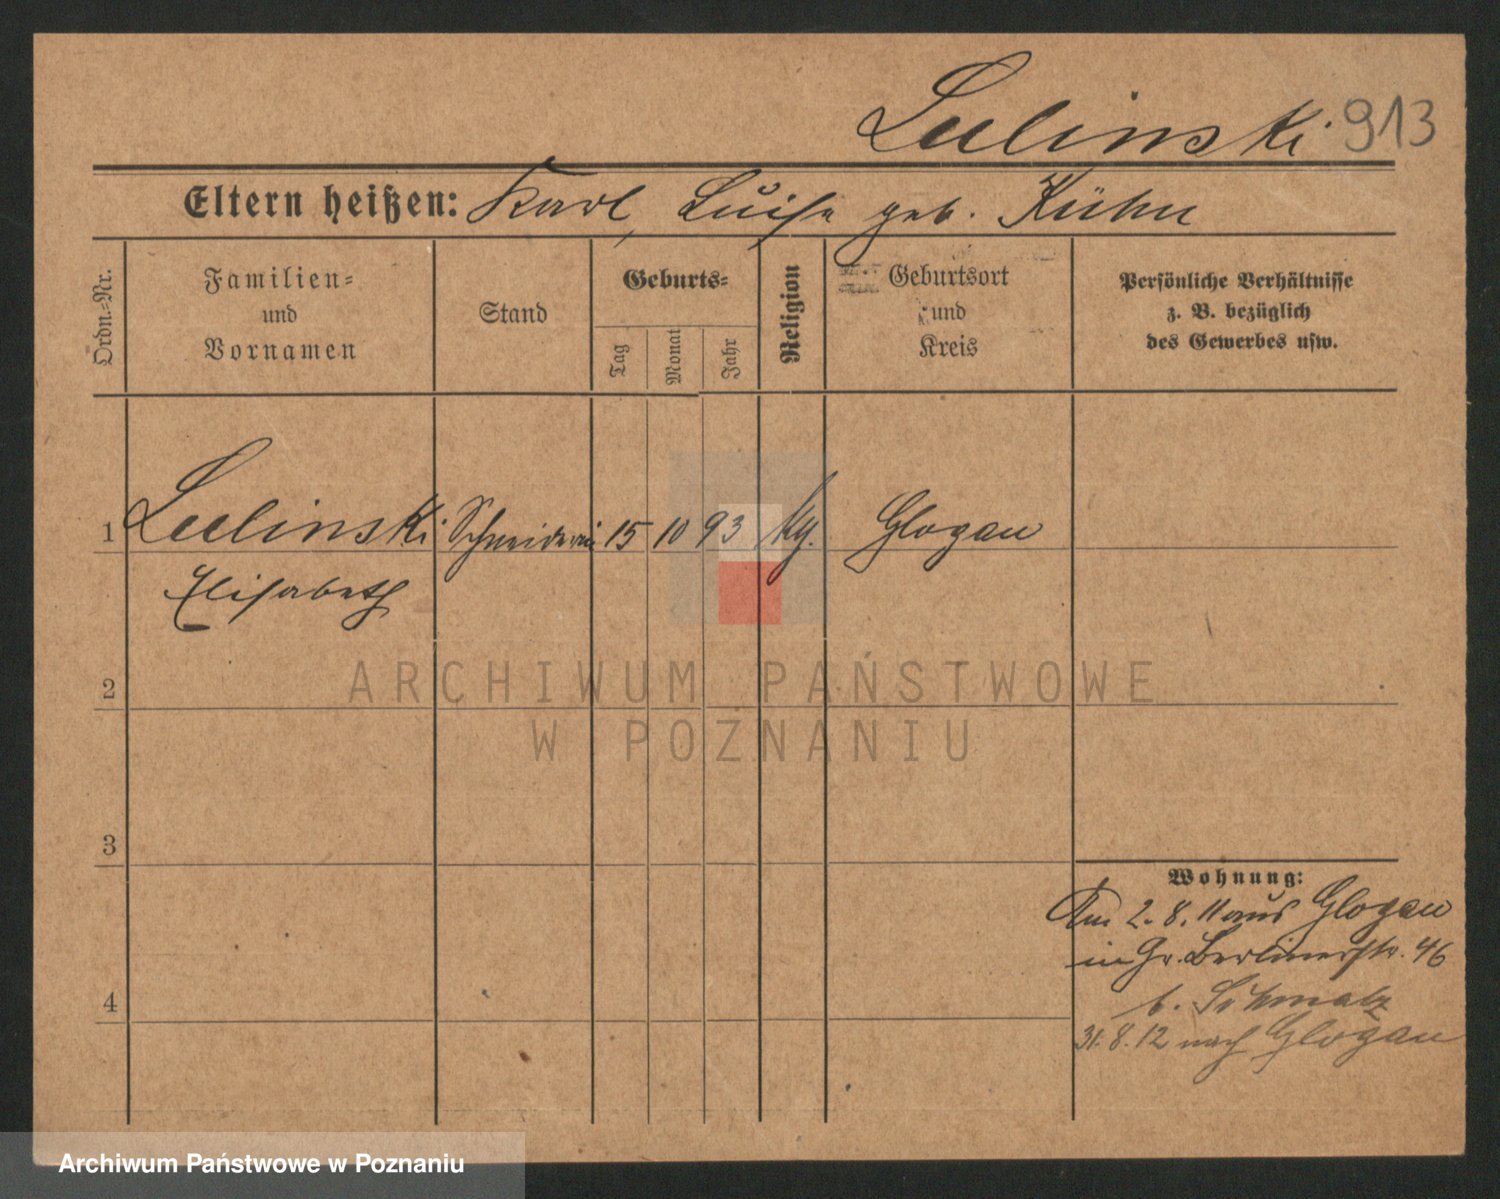 Lulinski 913
Eltern heißen: Karl, Luise geb. Kühn
Ordn.-Nr.
Familien-
und
Vornamen
Stand
Geburts-
Tag
Monat
Jahr
Religion
Geburtsort
und
Kreis
Persönliche Verhältnisse
z. B. bezüglich
des Gewerbes usw.
1 Lulinski Schneiderin 15 10 93 Glogau
Elisabeth
2
ARCHIWUM PAŃSTWOWE
W POZNANIU
3
Wohnung:
Am 2.8.11 aus Glogau
in Gr. Berlinerstr. 46
4
b.
31.8.12 nach Glogau
Archiwum Państwowe w Poznaniu